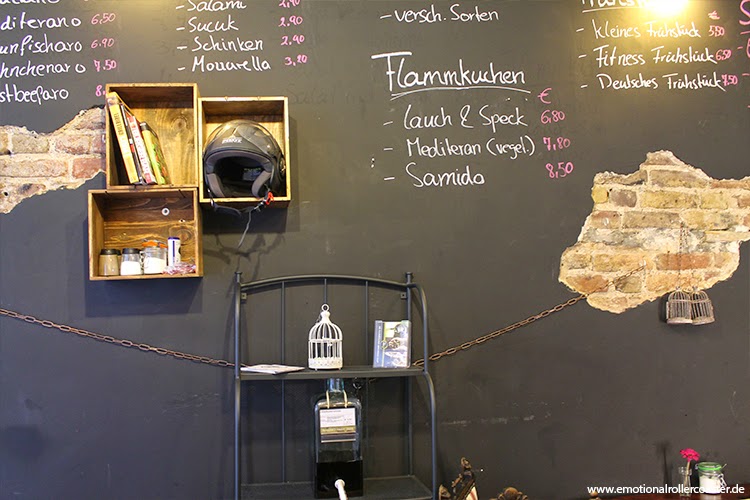 diterano 6,50
unfischaro 6.90
hnchenaro 7.50
stbeeparo
Salami 2,90
Sucuk 2.90
Schinken 2.90
Mozzarella 3,20
- versch. Sorten
Flammkuchen
€
- Lauch & Speck 6,80
- Mediteran (veget.) 7,80
- Samida 8,50
- kleines Frühstück 5,50
- Fitness Frühstück 6,50
- Deutsches Frühstück 7,50
www.emotionalrollercoaster.de